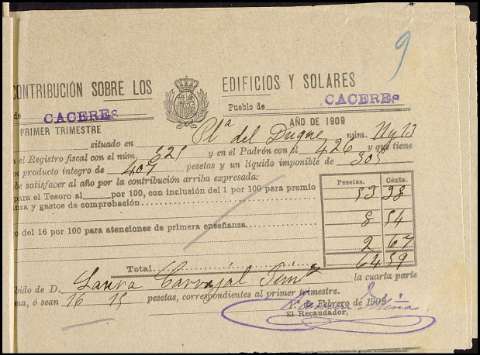 9
CONTRIBUCIÓN SOBRE LOS EDIFICIOS Y SOLARES
de CACERES Pueblo de CACERES
PRIMER TRIMESTRE AÑO DE 1909
situado en Pl.ª del Duque núm.
el Registro fiscal con el núm. 321 y en el Padrón con el 426 y que tiene
un producto íntegro de 407 pesetas y un líquido imponible de 305
de satisfacer al año por la contribución arriba expresada:
Pesetas. Cénts.
para el Tesoro al por 100, con inclusión del 1 por 100 para premio
anza y gastos de comprobación 53 38
o del 16 por 100 para atenciones de primera enseñanza 8 54
2 67
Total 64 59
bido de D. Laura Carvajal la cuarta parte
ma, ó sean 16 15 pesetas, correspondientes al primer trimestre.
de Febrero de 1909
El Recaudador,